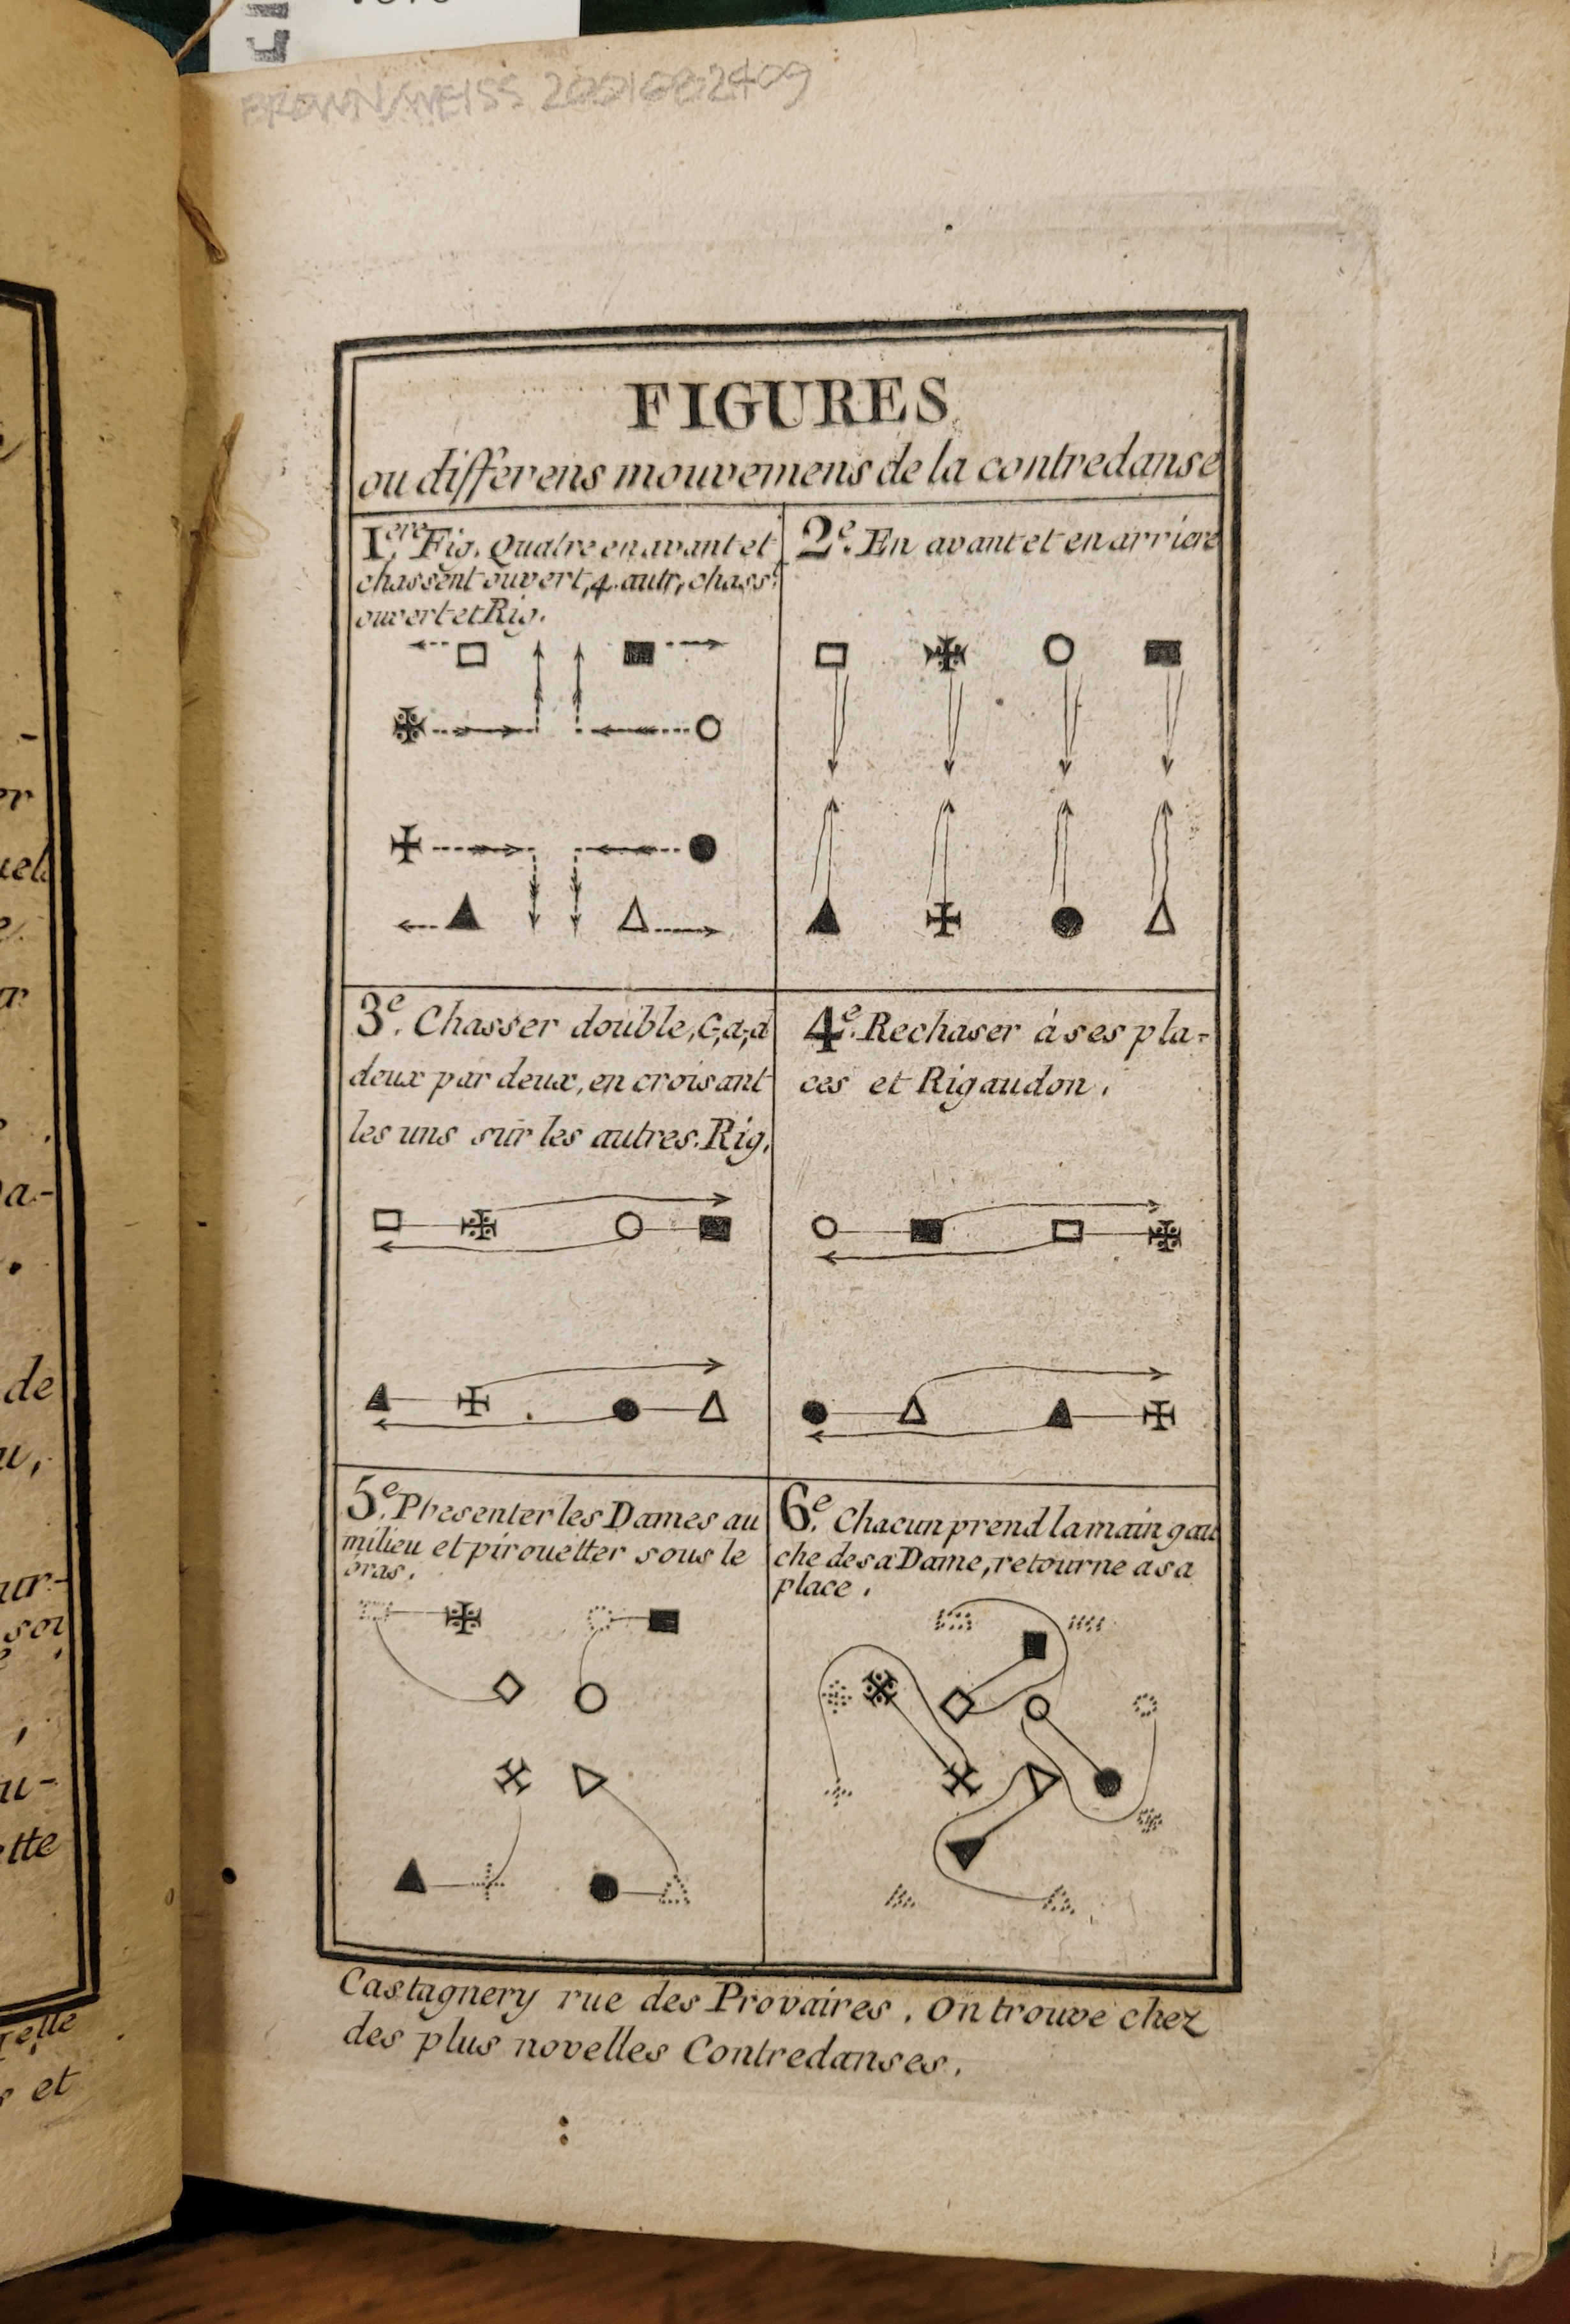 BROWN/WEISS 2001082409
FIGURES
ou differens mouvemens de la contredanse
1.ere Fig. Quatre en avant et
chassent ouvert, 4. autr, chass.t
ouvert et Rig.
2.e En avant et en arriere
3.e Chasser double, C,a,d
deux par deux, en croisant
les uns sur les autres. Rig.
4.e Rechaser à ses pla-
ces et Rigaudon.
5.e Presenter les Dames au
milieu et pirouetter sous le
bras.
6.e Chacun prend la main gau
che de sa Dame, retourne a sa
place.
Castagnery rue des Provaires. On trouve chez
des plus novelles Contredanses.
de
ette
elle
et